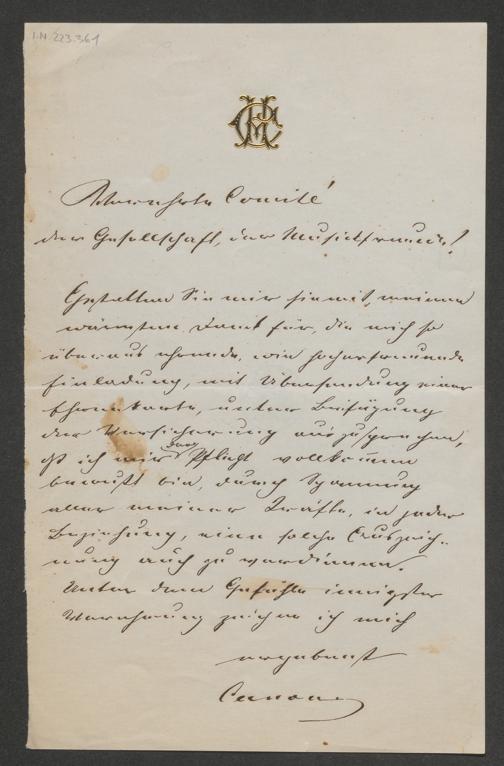 I.N. 223.361
Verehrtes Comité
der Gesellschaft der Musikfreunde!
Gestatten Sie mir hiemit, meinen
wärmsten Dank für die mich so
überaus ehrende, wie hocherfreuende
Einladung, mit Übersendung einer
Ehrenkarte, unter Beifügung
der Versicherung auszusprechen,
daß ich mir der Pflicht vollkommen
bewußt bin, durch Spannung
aller meiner Kräfte, in jeder
Beziehung, eine solche Auszeich-
nung auch zu verdienen.
Unter dem Gefühle innigster
Verehrung zeichne ich mich
ergebenst
Canon